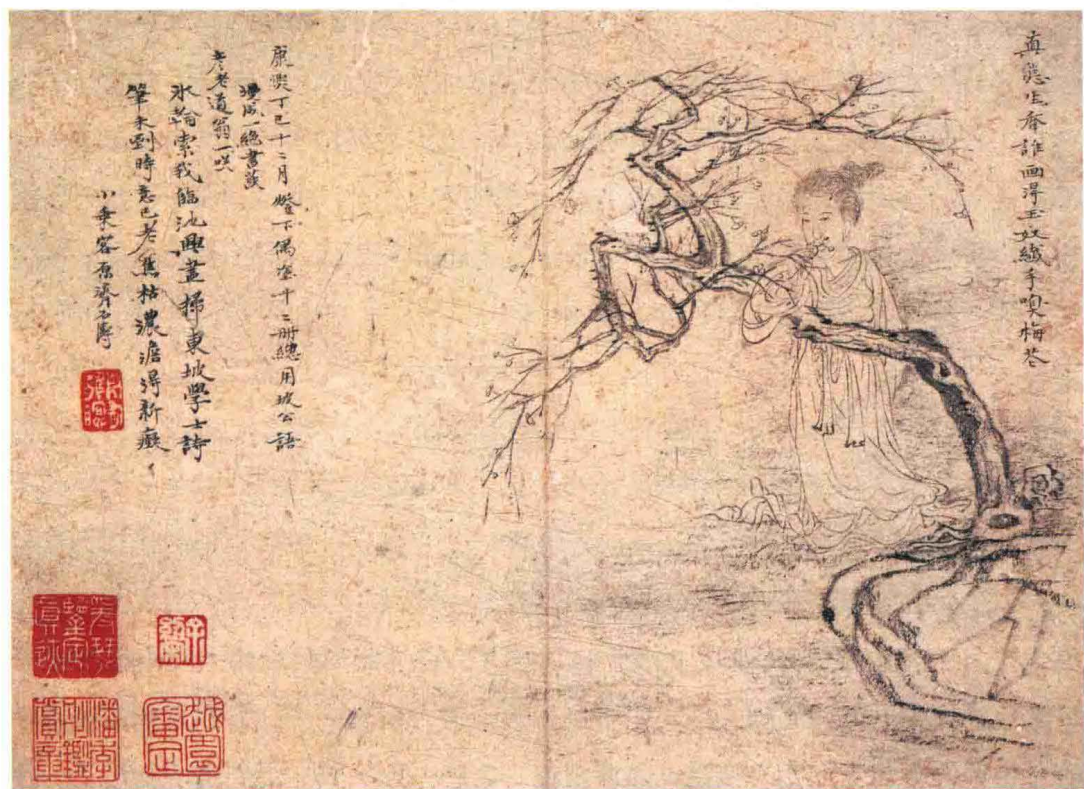 真態生香誰画得玉奴纖手嗅梅花
康熙丁巳十二月燈下偶塗十二冊總用坡公語
漫成一絕書
老道翁一笑
氷輪索我臨池興盡掃東坡學士詩
筆未到時意已老焦枯濃澹得新
小乘客原濟石濤
越園審定
潘季彤鑑賞章